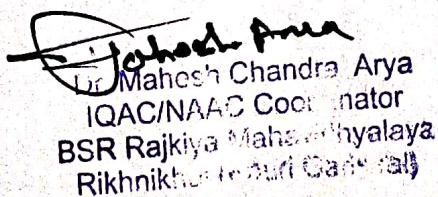 Mahesh Arya
Dr Mahesh Chandra Arya
IQAC/NAAC Coordinator
BSR Rajkiya Mahavidhyalaya
Rikhnikhal